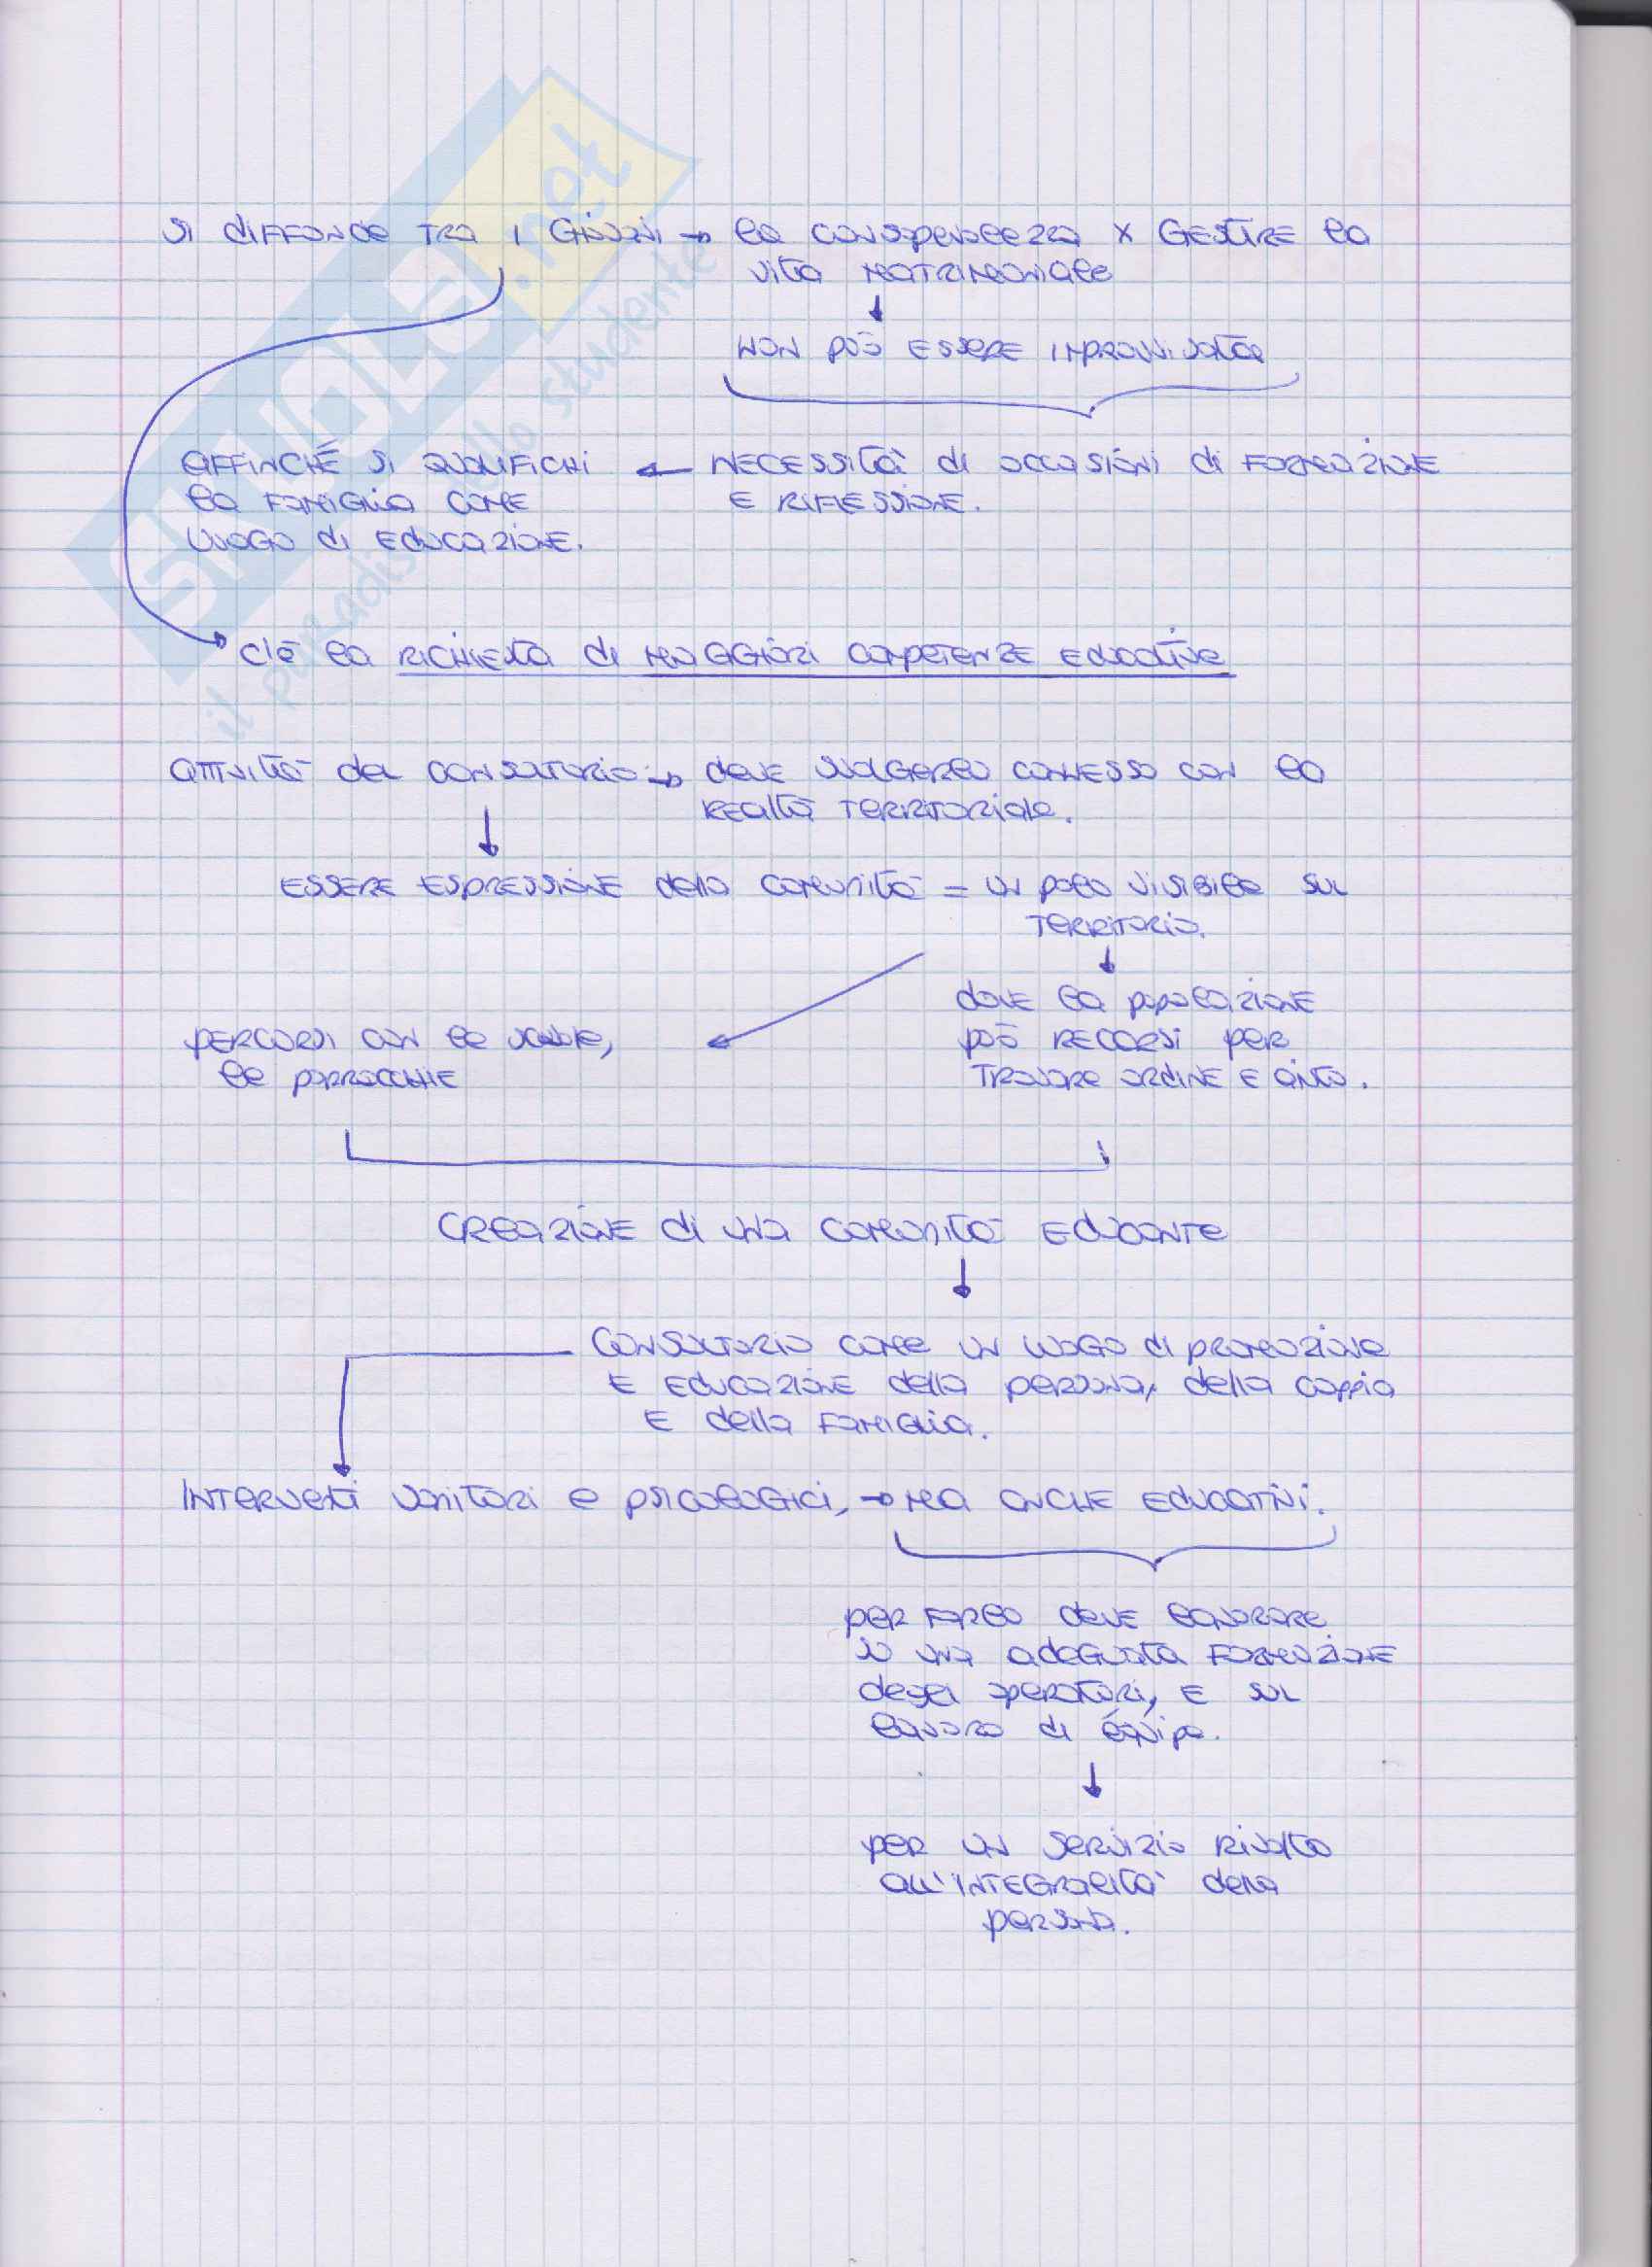 SI DIFFONDE TRA I GIOVANI → la consapevolezza x GESTIRE la
vita matrimoniale
↓
NON può ESSERE IMPROVVISATA
AFFINCHÉ SI QUALIFICHI ← NECESSITÀ di occasioni di FORMAZIONE
la FAMIGLIA COME E RIFLESSIONE.
LUOGO di EDUCAZIONE.
c'è la RICHIESTA di MAGGIORI COMPETENZE EDUCATIVE
attività del CONSULTORIO → deve svolgerlo connesso con la
REALTÀ TERRITORIALE.
↓
ESSERE ESPRESSIONE della comunità = un polo visibile SUL
TERRITORIO.
↓
dove la popolazione
PERCORSI con le scuole, ← può RECARSI per
le parrocchie TROVARE ORDINE E aiuto.
CREAZIONE di una comunità EDUCANTE
↓
CONSULTORIO come un luogo di promozione
E EDUCAZIONE della persona, della coppia
E della FAMIGLIA.
INTERVENTI sanitari e psicologici, → ma anche EDUCATIVI.
per FARLO deve lavorare
su una adeguata FORMAZIONE
degli operatori, E SUL
lavoro di équipe.
↓
per un servizio rivolto
all'INTEGRALITÀ della
persona.
SKUOLA.net
il paradiso dello studente